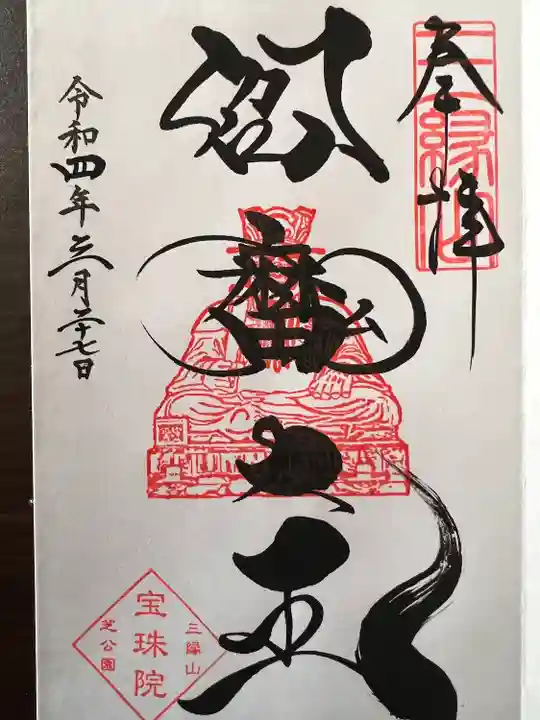 奉拝
三縁山
閻魔大王
令和四年六月二十七日
三縁山
宝珠院
芝公園